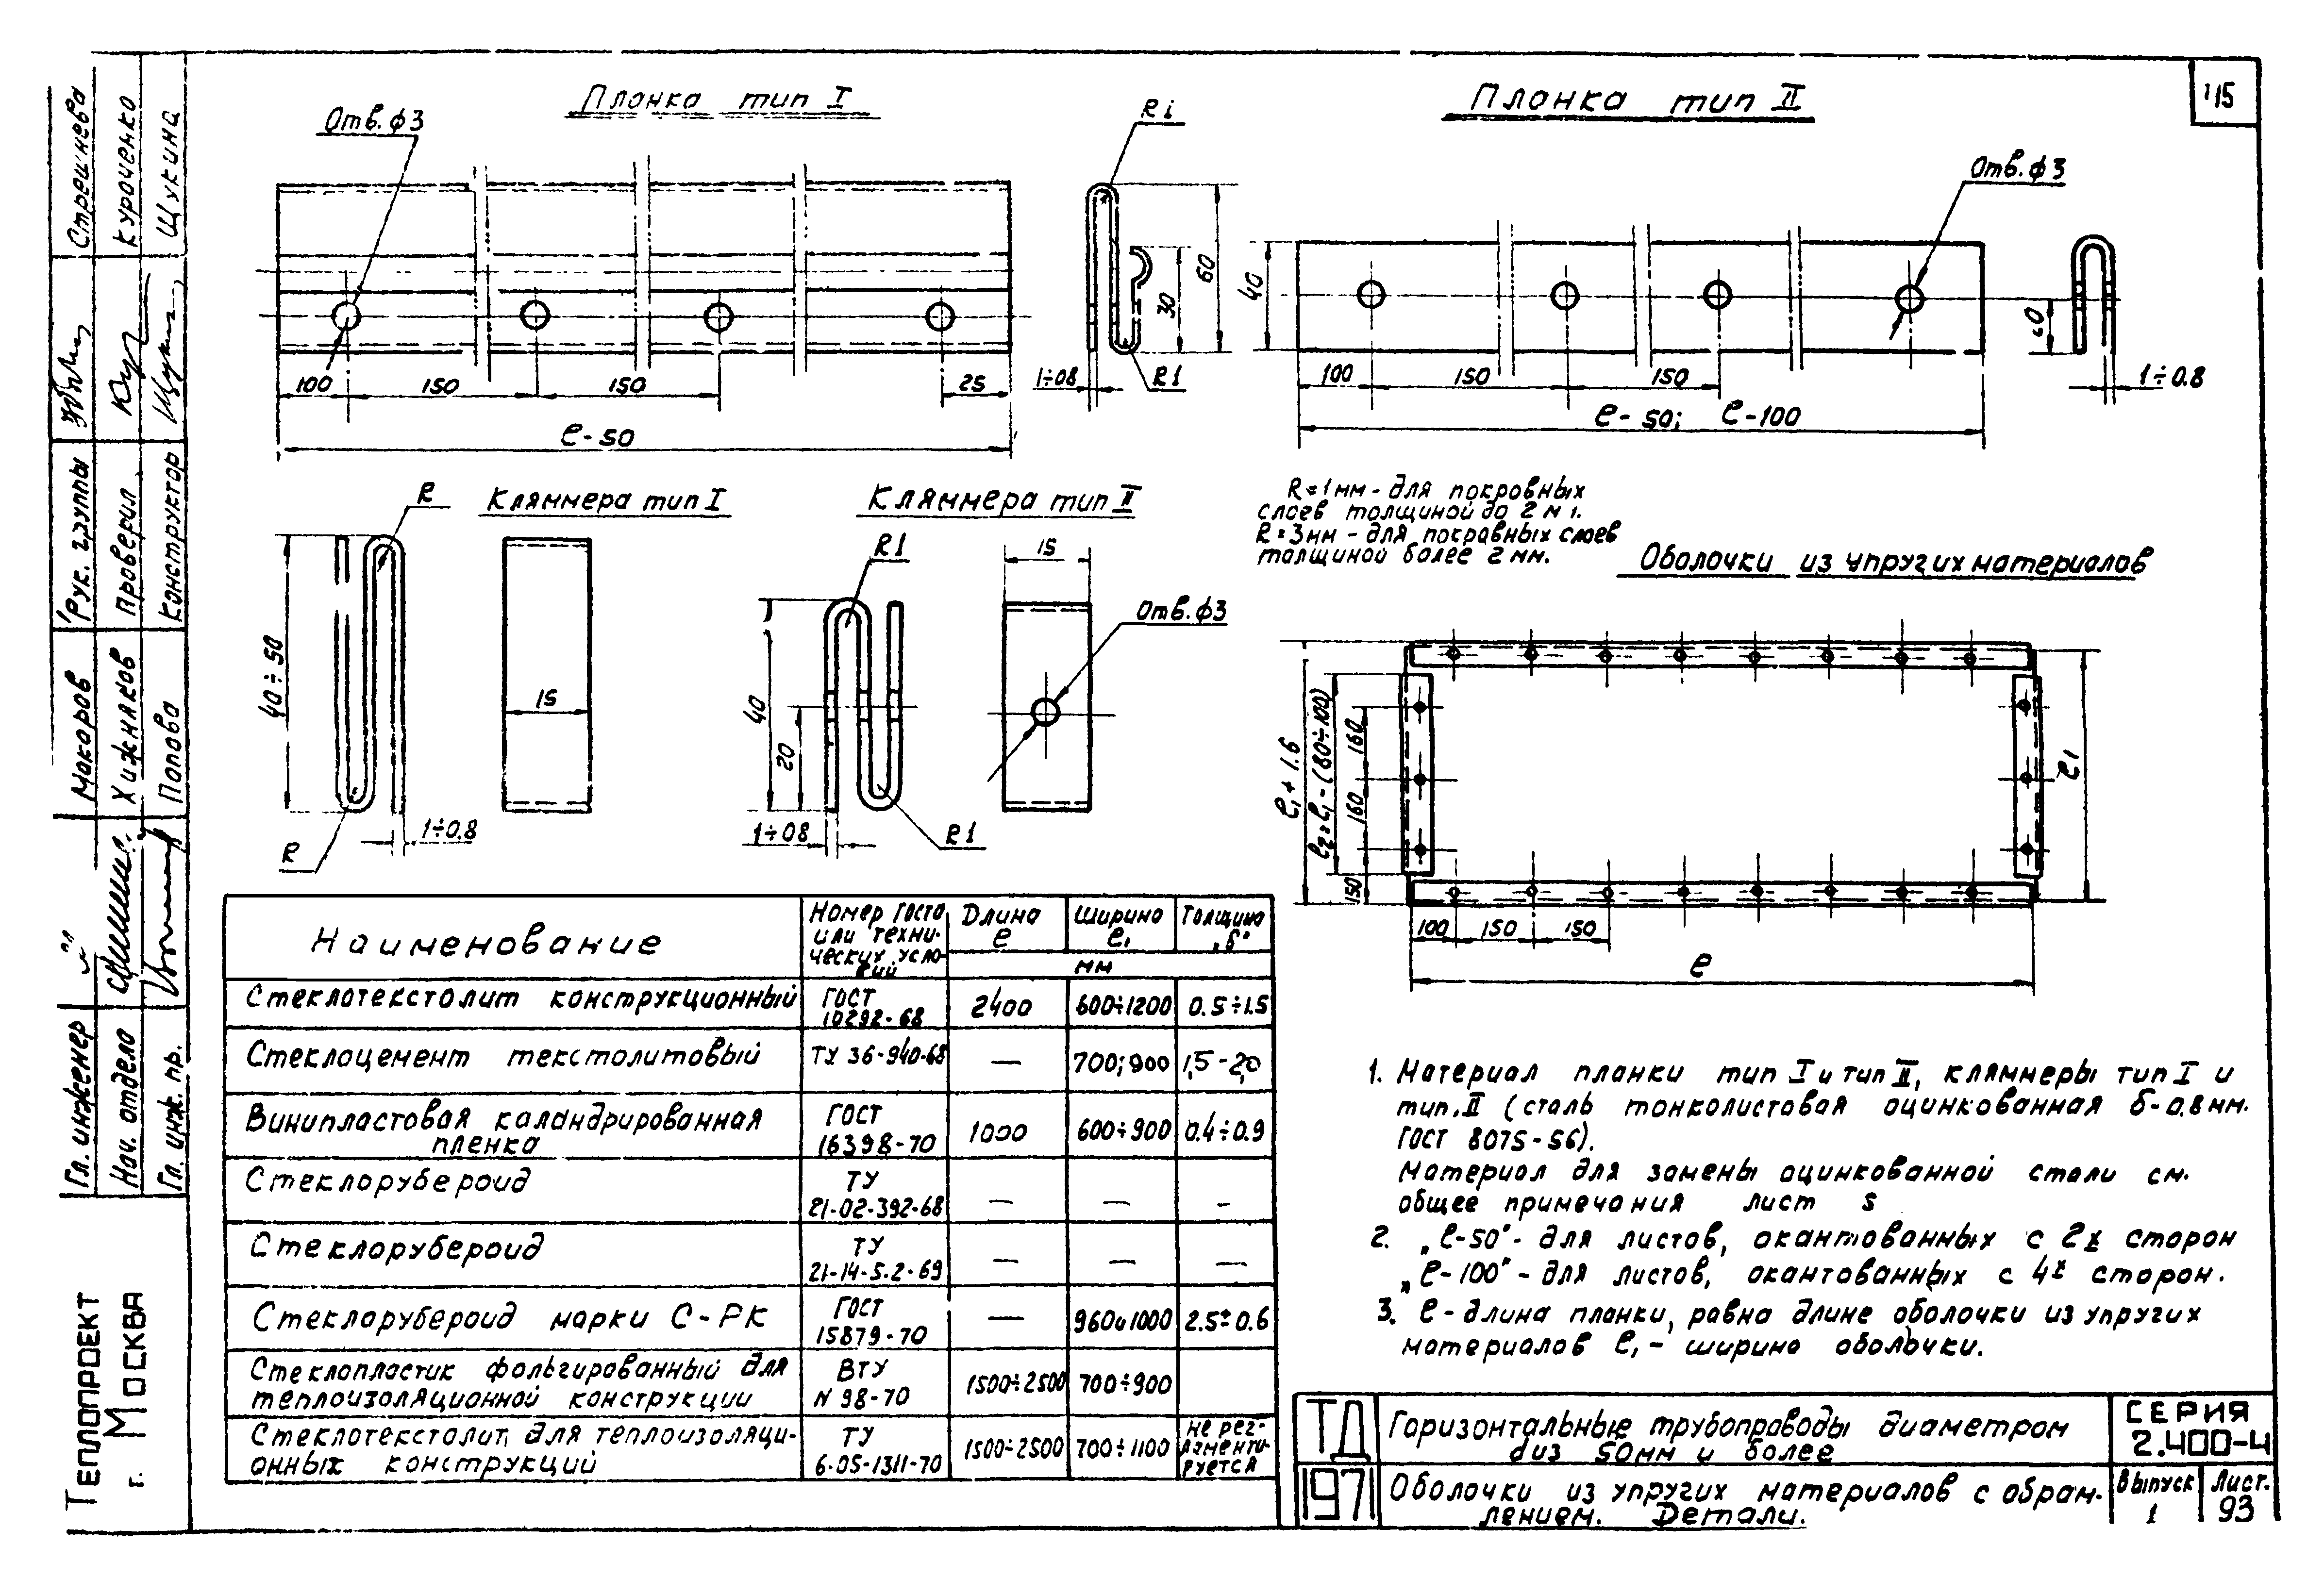 115
Планка тип I
Отв. ф3
100
150
150
25
ℓ-50
Ri
60
30
1÷08
R1
Планка тип II
Отв. ф3
40
100
150
150
ℓ-50; ℓ-100
1÷0.8
R=1мм - для покровных
слоев толщиной до 2 мм.
R=3мм - для покровных слоев
толщиной более 2 мм.
Кляммера тип I
R
40÷50
15
1÷0.8
R
Кляммера тип II
R1
40
20
1÷08
R1
15
Отв. ф3
Оболочки из упругих материалов
ℓ₁+1.6
ℓ₂=ℓ₁-(80÷100)
160
160
150
100
150
150
ℓ
ℓ1
Наименование
Номер Госта
или техни-
ческих усло-
вий
Длина
ℓ
Ширина
ℓ₁
Толщина
„δ"
мм
Стеклотекстолит конструкционный
ГОСТ
10292-68
2400
600÷1200
0.5÷1.5
Стеклоцемент текстолитовый
ТУ 36-940-68
—
700;900
1,5-2,0
Винипластовая каландрированная
пленка
ГОСТ
16398-70
1000
600÷900
0.4÷0.9
Стеклорубероид
ТУ
21-02-392-68
—
—
–
Стеклорубероид
ТУ
21-14-5.2-69
—
—
—
Стеклорубероид марки С-РК
ГОСТ
15879-70
—
960и1000
2.5±0.6
Стеклопластик фольгированный для
теплоизоляционной конструкции
ВТУ
N 98-70
1500÷2500
700÷900
Стеклотекстолит для теплоизоляци-
онных конструкций
ТУ
6-05-1311-70
1500÷2500
700÷1100
не рег-
ламенти-
руется
1. Материал планки тип I и тип II, кляммеры тип I и
тип. II (сталь тонколистовая оцинкованная δ-0.8 мм.
ГОСТ 8075-56).
Материал для замены оцинкованной стали см.
общее примечания лист 5
2. „ℓ-50"- для листов, окантованных с 2х сторон
„ℓ-100"- для листов, окантованных с 4х сторон.
3. ℓ - длина планки, равна длине оболочки из упругих
материалов ℓ₁ - ширина оболочки.
ТД
1971
Горизонтальные трубопроводы диаметром
диз 50мм и более
СЕРИЯ
2.400-4
Оболочки из упругих материалов с обрам-
лением. Детали.
Выпуск
1
Лист.
93
Гл. инженер
Макаров
Рук. группы
Стрешнева
Нач. отдела
Хижняков
Проверил
Куроченко
Гл. инж. пр.
Попова
Конструктор
Щукина
ТЕПЛОПРОЕКТ
г. МОСКВА